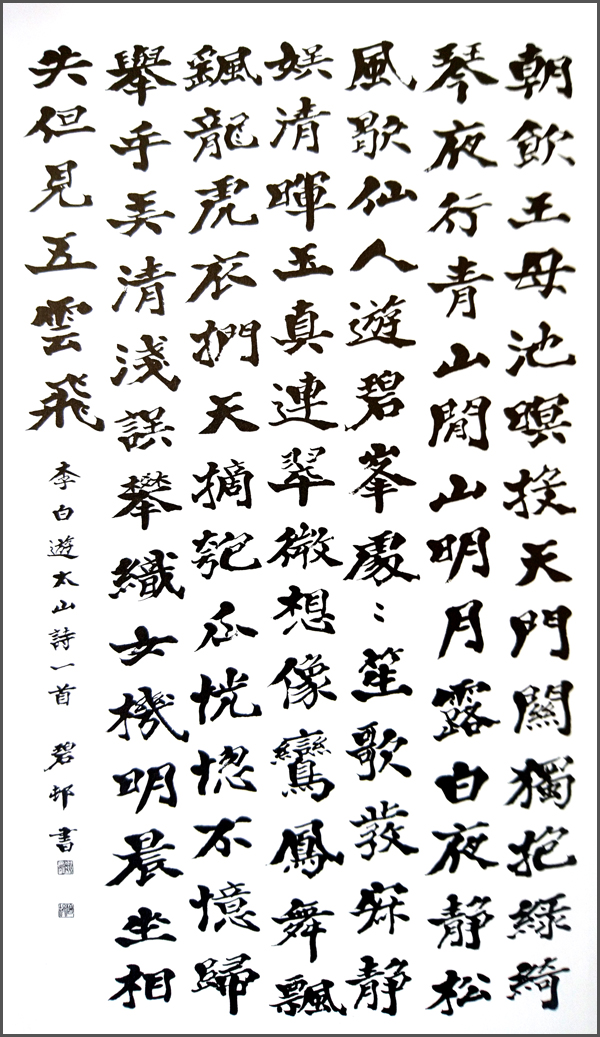 朝飲王母池暝投天門關獨抱綠綺
琴夜行青山閒山明月露白夜靜松
風歇仙人遊碧峯處〻笙歌發寂靜
娛清暉玉真連翠微想像鸞鳳舞飄
颻龍虎衣捫天摘匏瓜恍惚不憶歸
舉手弄清淺誤攀織女機明晨坐相
失但見五雲飛
李白遊太山詩一首 碧邨書